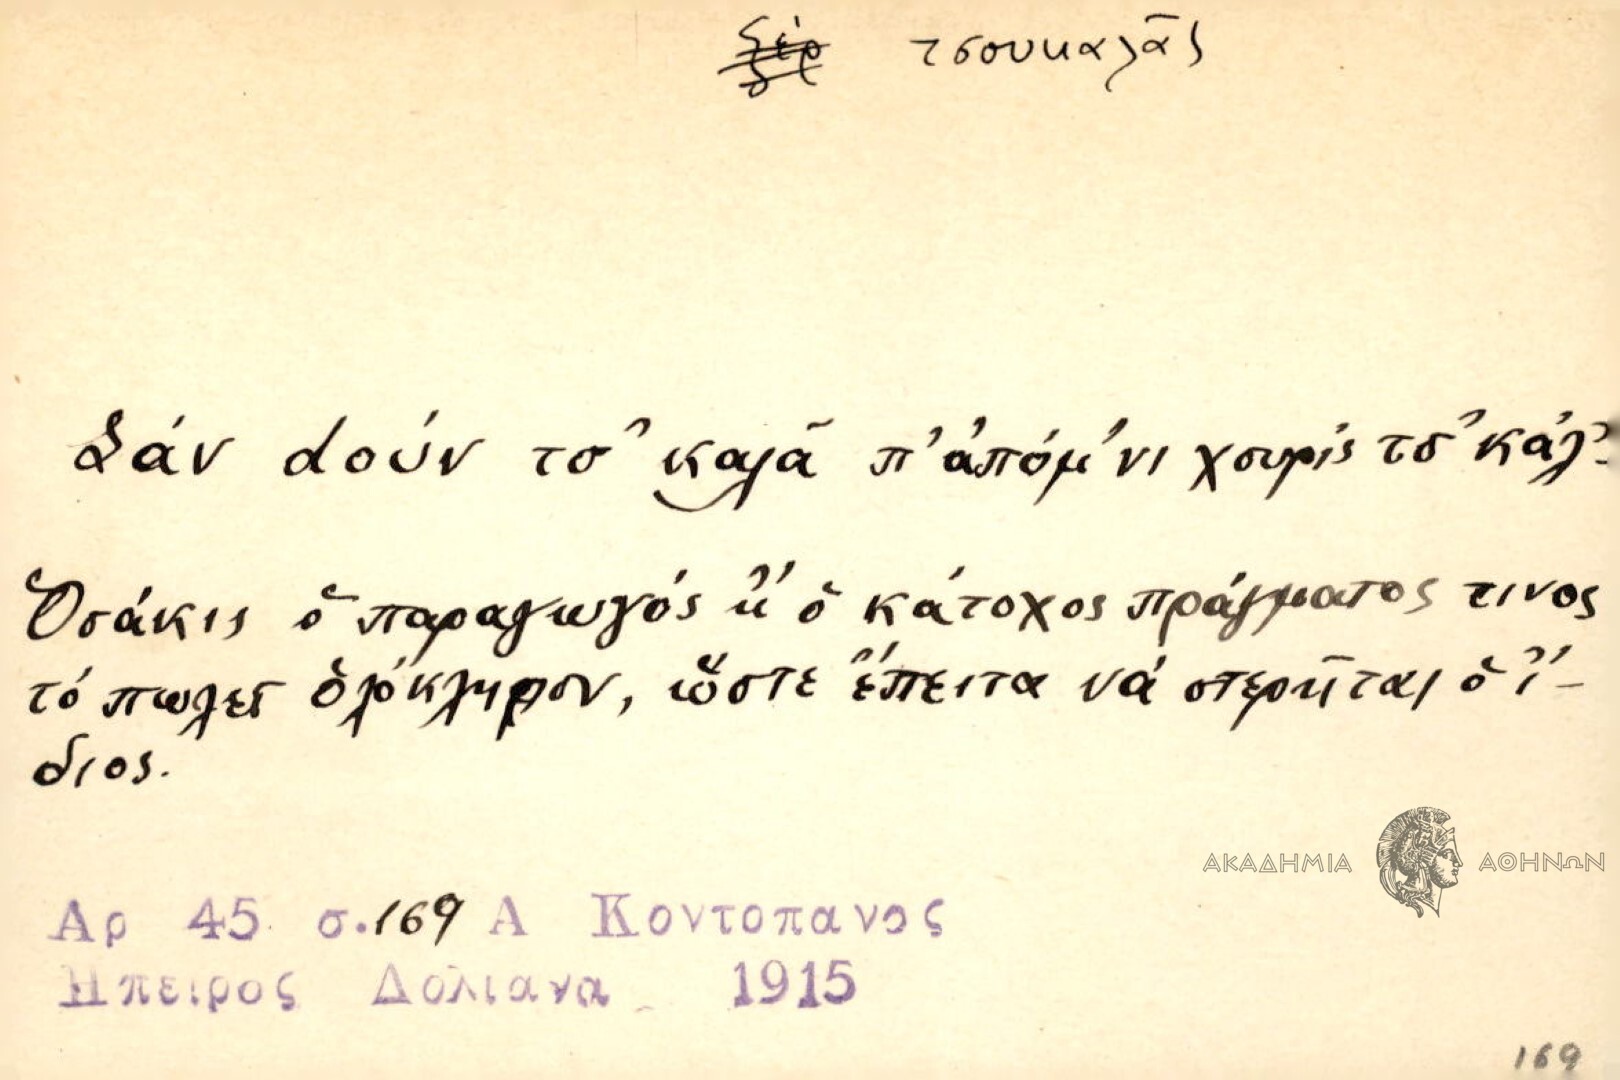 τσουκαλᾶς
Σάν dούν τσ̓ καλᾶ π̓ ἀπόμ'νι χουρίς τσ̓ κάλ̓.
Ὁσάκις ὁ παραγωγός ἤ ὁ κάτοχος πράγματος τινος
τό πωλεῖ ὁλόκληρον, ὥστε ἔπειτα νά στερῆται ὁ ἴ-
διος.
ΑΚΑΔΗΜΙΑ ΑΘΗΝΩΝ
Αρ 45 σ.169 Α Κοντοπανος
Ηπειρος Δολιανα 1915
169